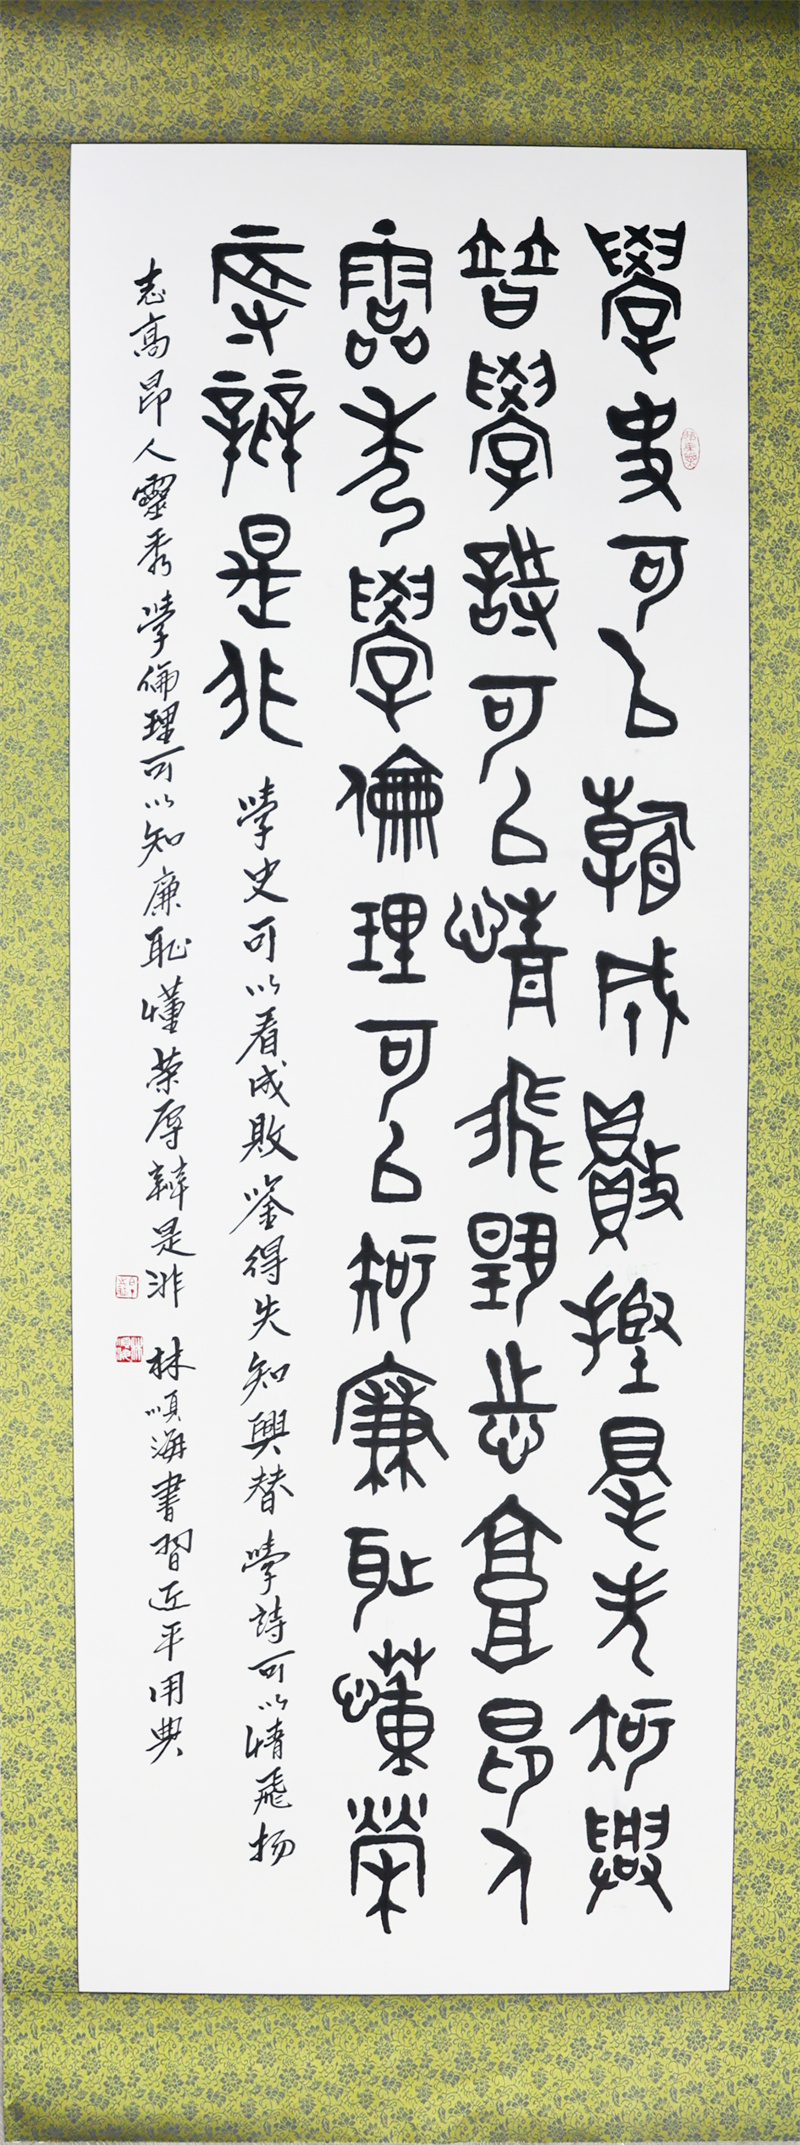 學史可以看成敗鑒得失知興
替學詩可以情飛揚志高昂人
靈秀學倫理可以知廉恥懂榮
辱辨是非
學史可以看成敗鑒得失知興替學詩可以情飛扬
志高昂人靈秀學倫理可以知廉恥懂榮辱辨是非 林順海書習近平用典